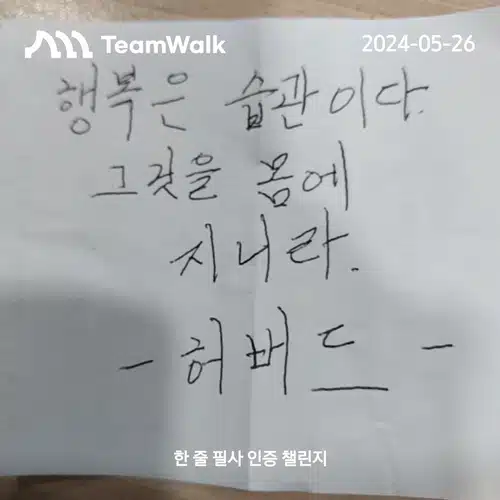 TeamWalk
2024-05-26
행복은 습관이다.
그것을 몸에
지니라.
- 허버드 -
한 줄 필사 인증 챌린지